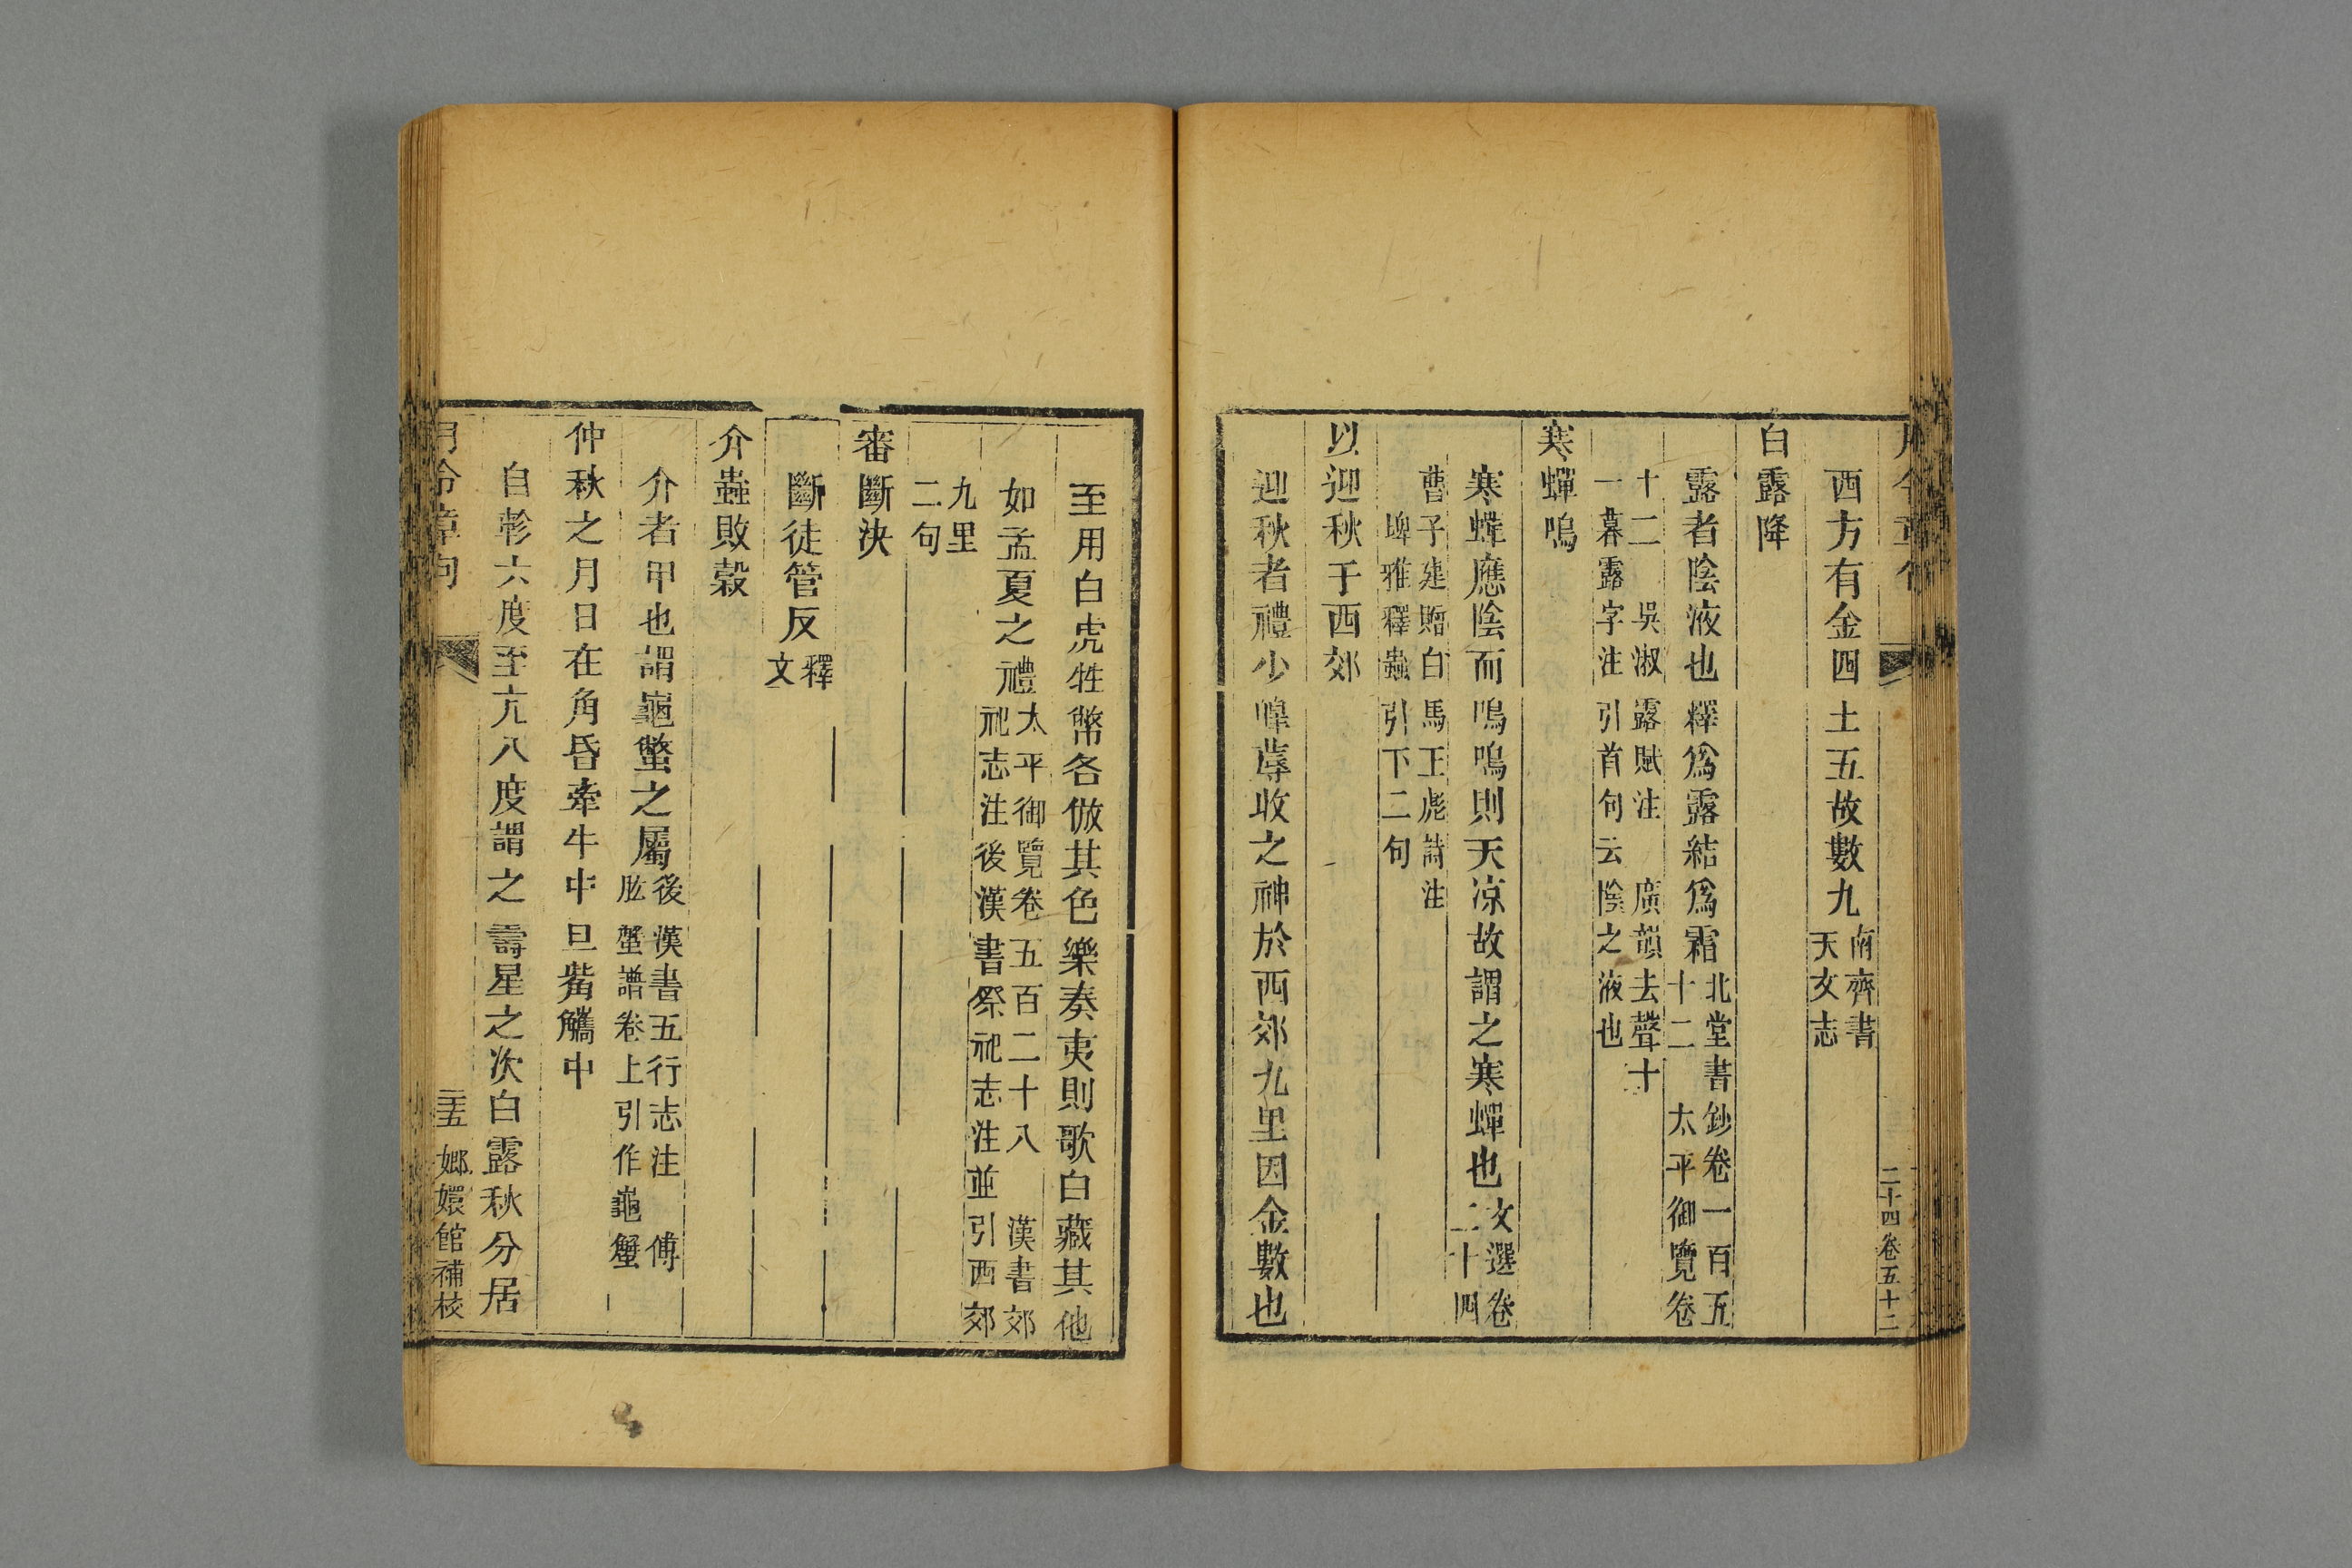 月令章句
二十四 卷五十二
西方有金四土五故數九
南齊書
天文志
白露降
露者陰液也釋爲露結爲霜
北堂書鈔卷一百五
十二 太平御覽卷
十二 吳淑露賦注 廣韻去聲十
一暮露字注引首句云陰之液也
寒蟬鳴
寒蟬應陰而鳴鳴則天凉故謂之寒蟬也
文選卷
二十四
曹子建贈白馬王彪詩注
埤雅釋蟲引下二句
以迎秋于西郊
迎秋者禮少皥蓐收之神於西郊九里因金數也
至用白虎牲幣各倣其色樂奏夷則歌白藏其他
如孟夏之禮
太平御覽卷五百二十八 漢書郊
祀志注後漢書祭祀志注並引西郊
九里
二句
審斷決
斷徒管反
釋
文
介蟲敗穀
介者甲也謂龜蟞之屬
後漢書五行志注 傅
肱蟹譜卷上引作龜蟹
仲秋之月日在角昏牽牛中旦觜觿中
自軫六度至亢八度謂之壽星之次白露秋分居
月令章句
三五 嫏嬛館補校